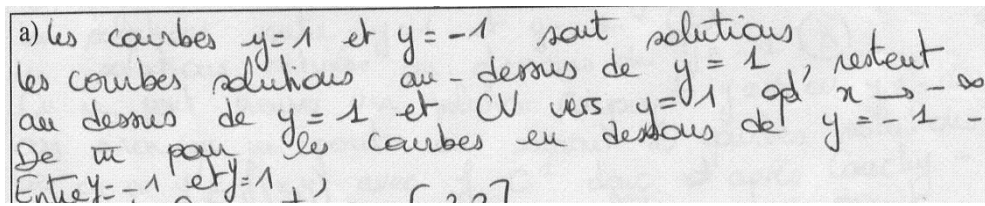 a) les courbes y=1 et y=-1 sont solutions
les courbes solutions au-dessus de y=1 restent
au dessus de y=1 et CV vers y=1 qd x → -∞
De m pour les courbes en dessous de y=-1-
Entre y=-1 et y=1,